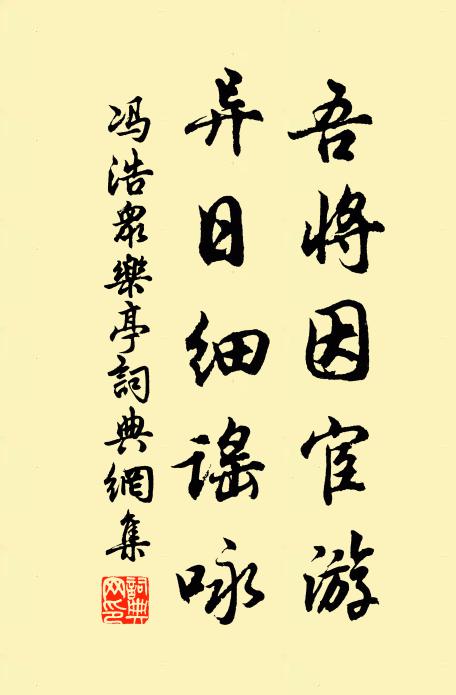 吾将因宦游
异日细谣咏
冯浩眾樂亭詞典網集
詞典網印